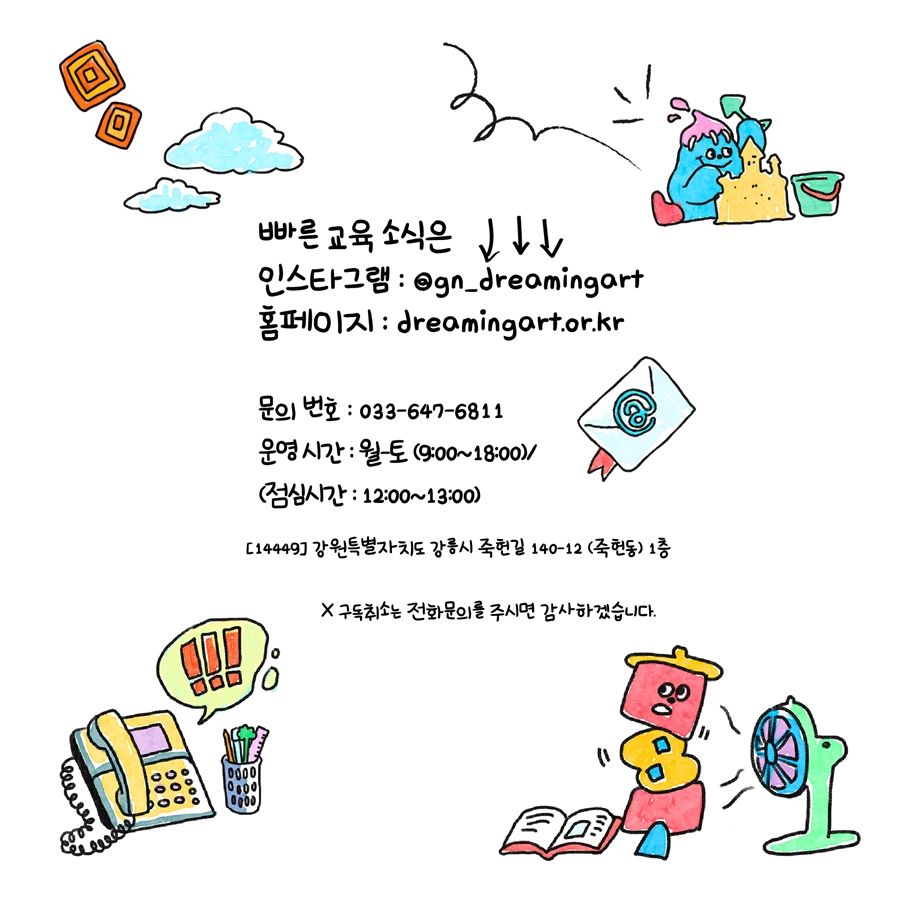 빠른 교육 소식은
인스타그램 : @gn_dreamingart
홈페이지 : dreamingart.or.kr
문의 번호 : 033-647-6811
운영 시간 : 월-토 (9:00~18:00)/
(점심시간 : 12:00~13:00)
[14449] 강원특별자치도 강릉시 죽헌길 140-12 (죽헌동) 1층
X 구독취소는 전화문의를 주시면 감사하겠습니다.
!!!
@